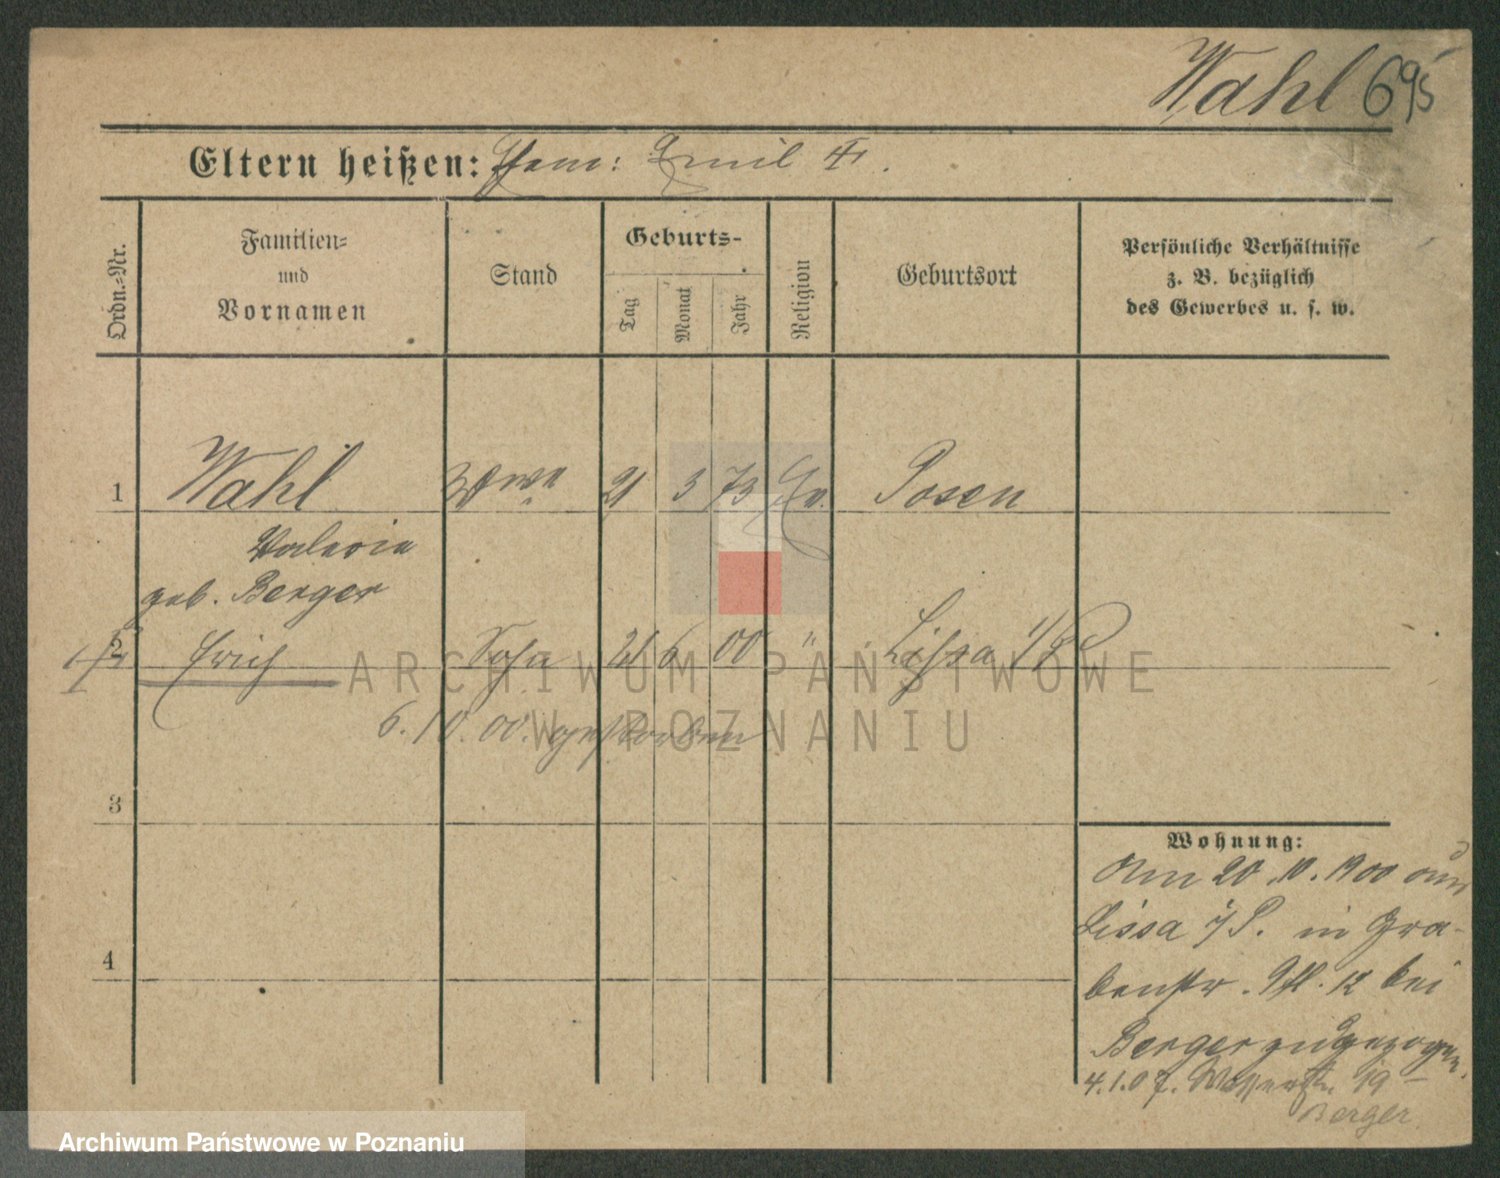 Wahl 695
Eltern heißen: Ehem: Emil †.
Ordn.-Nr.
Familien-
und
Vornamen
Stand
Geburts-
Tag
Monat
Jahr
Religion
Geburtsort
Persönliche Verhältnisse
z. B. bezüglich
des Gewerbes u. s. w.
1 Wahl Wwe 21 3 73 Ev. Posen
Valeria
geb. Berger
2 Erich Sohn 21 6 00 " Lissa i/P
6.10.00. gestorben
3
4
Wohnung:
Am 20.10.1900 aus
Lissa i/P. in Gra-
benstr. 12 bei
Berger zugezogen.
4.1.07. 19
Berger
ARCHIWUM PAŃSTWOWE
W POZNANIU
Archiwum Państwowe w Poznaniu